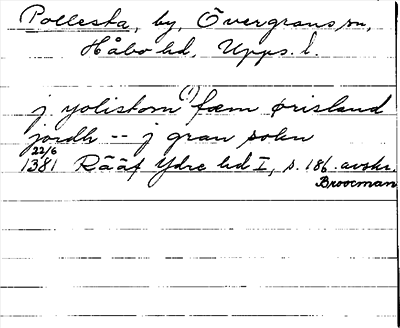 Pollesta, by, Övergrans sn,
Håbo hd, Upps. l.
j yolistom (!) fæm ørisland
jordh -- j gran sokn
22/6
1381 Rääf Ydre hd I, s. 186. avskr.
Broocman